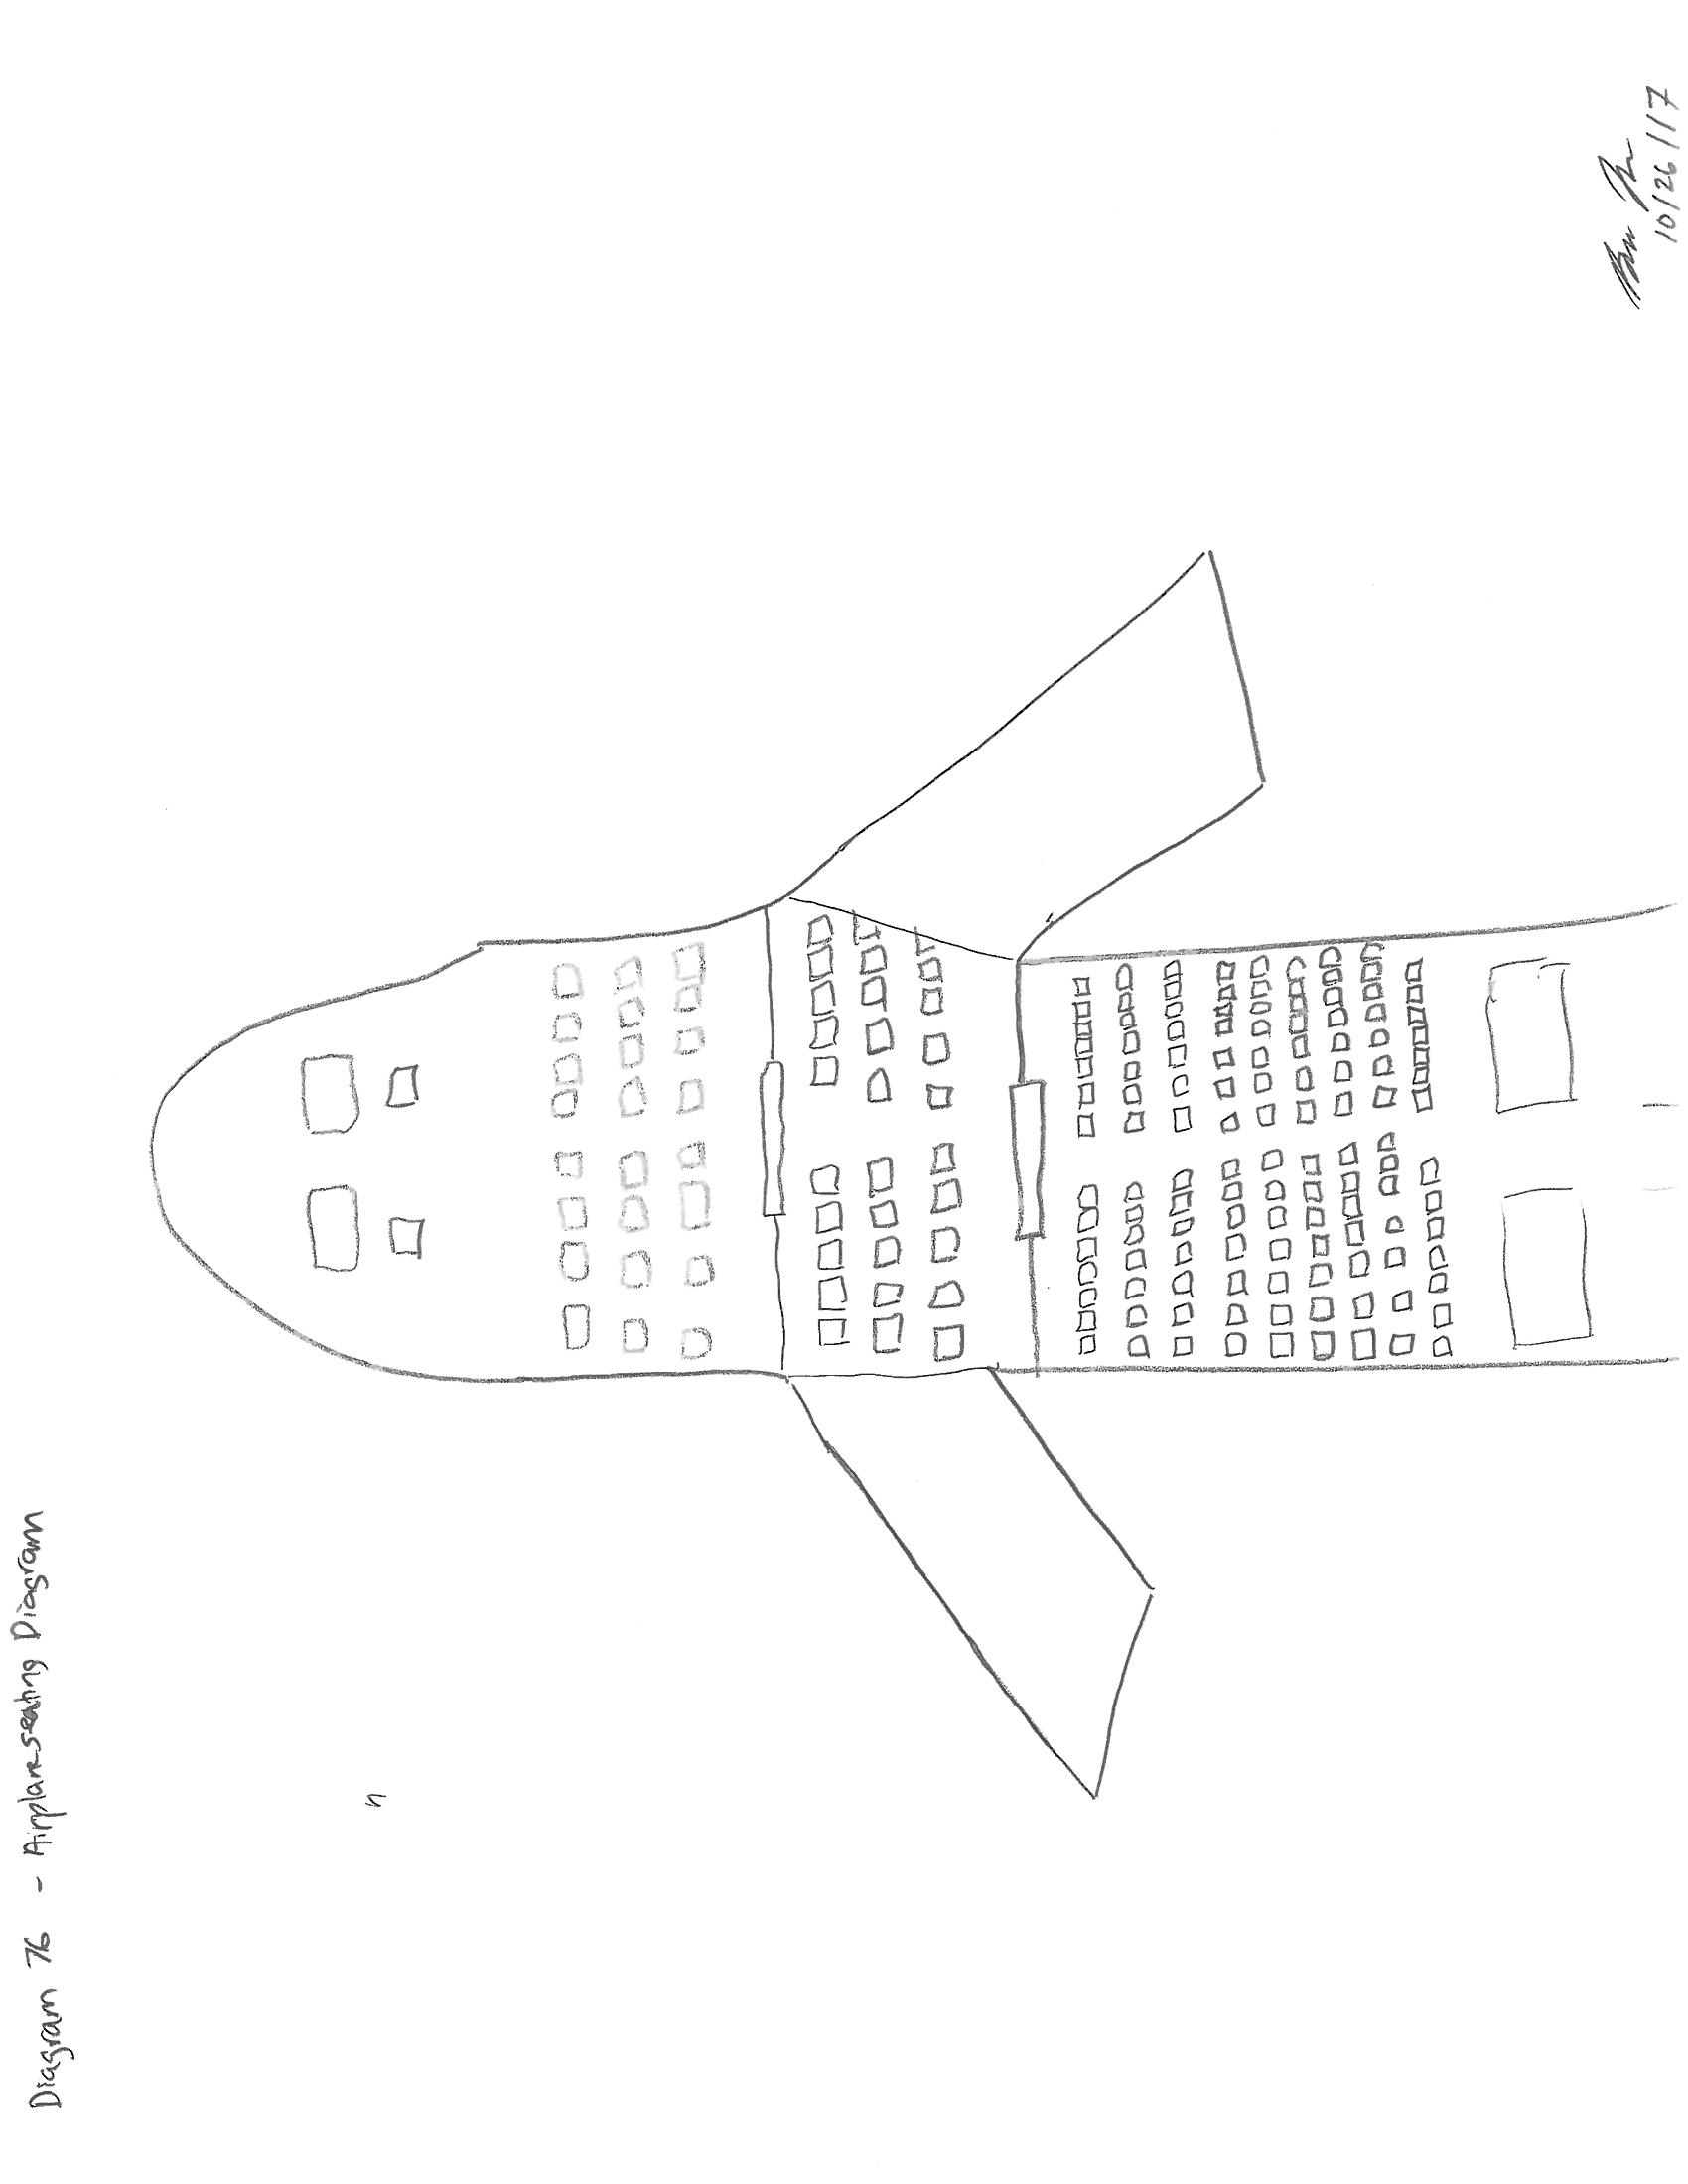 Diagram 76 - Airplane seating Diagram
n
10/26/17